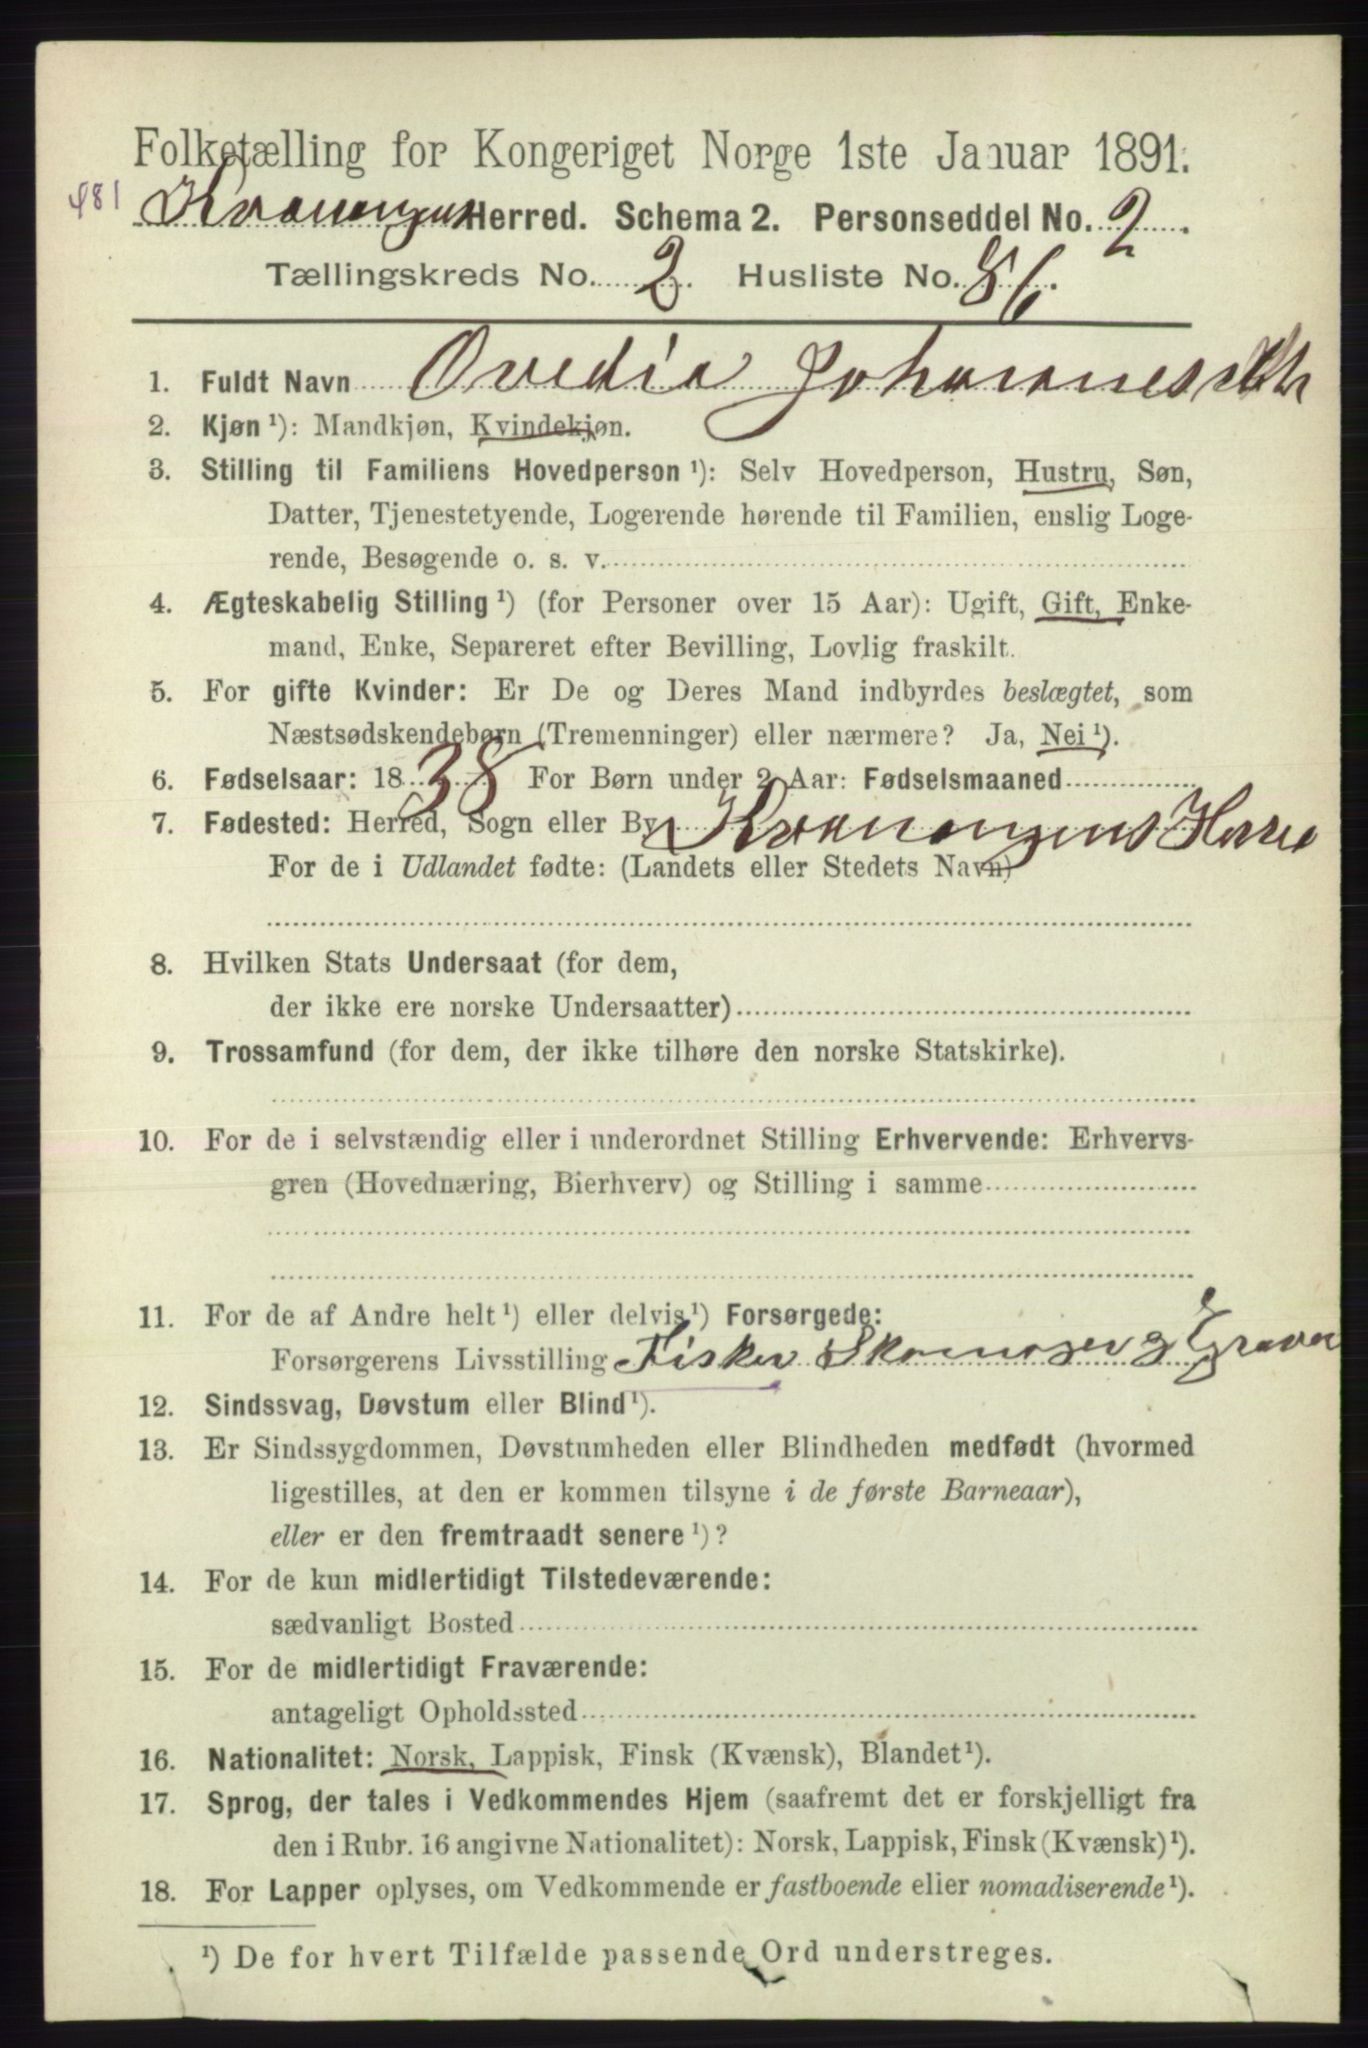 Folketælling for Kongeriget Norge 1ste Januar 1891.
481 Kvænangens Herred. Schema 2. Personseddel No. 2.
Tællingskreds No. 2. Husliste No. 86.
1. Fuldt Navn Ovedia
2. Kjøn ¹): Mandkjøn, Kvindekjøn.
3. Stilling til Familiens Hovedperson ¹): Selv Hovedperson, Hustru, Søn,
Datter, Tjenestetyende, Logerende hørende til Familien, enslig Loge-
rende, Besøgende o. s. v.
4. Ægteskabelig Stilling ¹) (for Personer over 15 Aar): Ugift, Gift, Enke-
mand, Enke, Separeret efter Bevilling, Lovlig fraskilt.
5. For gifte Kvinder: Er De og Deres Mand indbyrdes beslægtet, som
Næstsødskendebørn (Tremenninger) eller nærmere? Ja, Nei ¹).
6. Fødselsaar: 1838 For Børn under 2 Aar: Fødselsmaaned
7. Fødested: Herred, Sogn eller By Kvænangens Herred
For de i Udlandet fødte: (Landets eller Stedets Navn)
8. Hvilken Stats Undersaat (for dem,
der ikke ere norske Undersaatter)
9. Trossamfund (for dem, der ikke tilhøre den norske Statskirke).
10. For de i selvstændig eller i underordnet Stilling Erhvervende: Erhvervs-
gren (Hovednæring, Bierhverv) og Stilling i samme
11. For de af Andre helt ¹) eller delvis ¹) Forsørgede:
Forsørgerens Livsstilling Fisker Skomager & Graver
12. Sindssvag, Døvstum eller Blind ¹).
13. Er Sindssygdommen, Døvstumheden eller Blindheden medfødt (hvormed
ligestilles, at den er kommen tilsyne i de første Barneaar),
eller er den fremtraadt senere ¹)?
14. For de kun midlertidigt Tilstedeværende:
sædvanligt Bosted
15. For de midlertidigt Fraværende:
antageligt Opholdssted
16. Nationalitet: Norsk, Lappisk, Finsk (Kvænsk), Blandet ¹).
17. Sprog, der tales i Vedkommendes Hjem (saafremt det er forskjelligt fra
den i Rubr. 16 angivne Nationalitet): Norsk, Lappisk, Finsk (Kvænsk) ¹).
18. For Lapper oplyses, om Vedkommende er fastboende eller nomadiserende ¹).
¹) De for hvert Tilfælde passende Ord understreges.